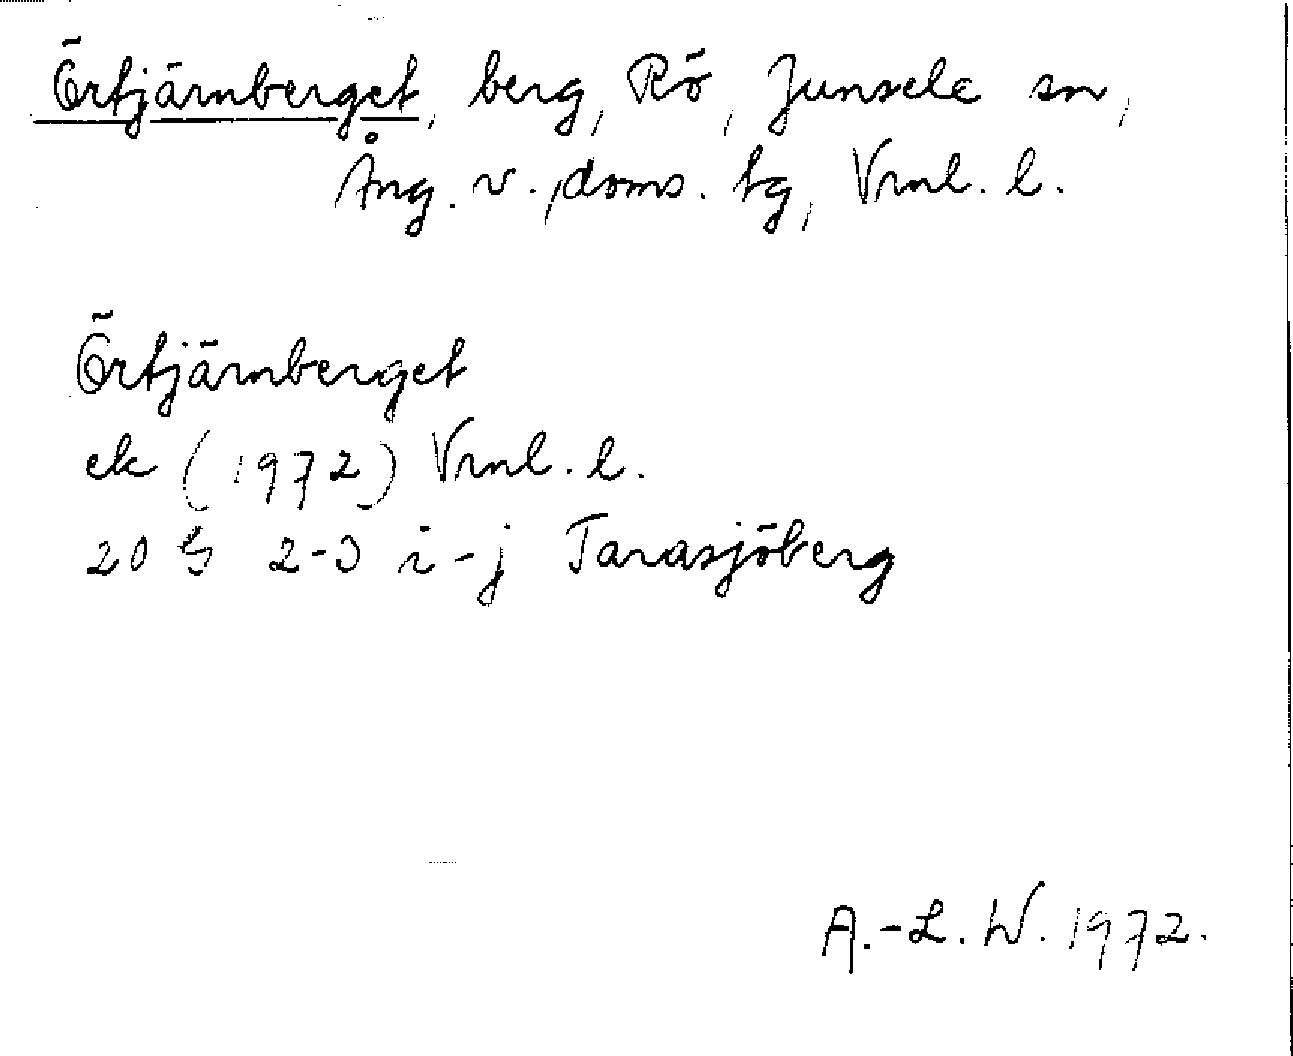 Örtjärnberget, berg, Rö, Junsele sn,
Ång. v. doms. tg, Vrnl. l.
Örtjärnberget
ek (1972) Vrnl. l.
20 G 2-3 i-j Tarasjöberg
A.-L. W. 1972.